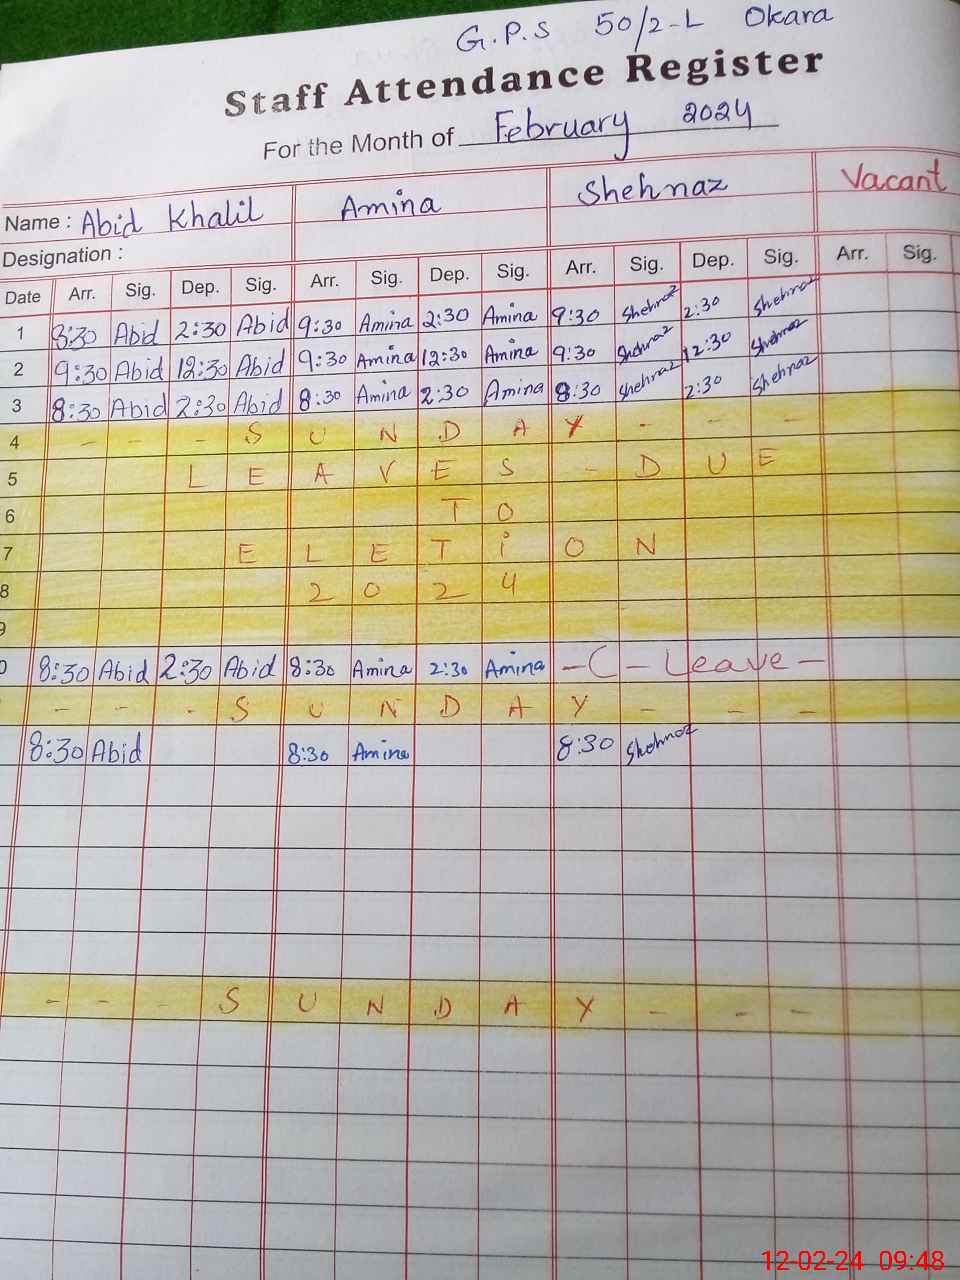 G.P.S 50/2-L Okara
Staff Attendance Register
For the Month of February 2024
Name : Abid Khalil Amina Shehnaz Vacant
Designation :
Date Arr. Sig. Dep. Sig. Arr. Sig. Dep. Sig. Arr. Sig. Dep. Sig. Arr. Sig.
1 8:30 Abid 2:30 Abid 9:30 Amina 2:30 Amina 9:30 Shehnaz 2:30 Shehnaz
2 9:30 Abid 12:30 Abid 9:30 Amina 12:30 Amina 9:30 Shehnaz 12:30 Shehnaz
3 8:30 Abid 2:30 Abid 8:30 Amina 2:30 Amina 8:30 Shehnaz 2:30 Shehnaz
4 - - - S U N D A Y - - -
5 L E A V E S - D U E
6 T O
7 E L E T i O N
8 2 0 2 4
9
0 8:30 Abid 2:30 Abid 8:30 Amina 2:30 Amina - C - Leave -
- - - S U N D A Y - - -
8:30 Abid 8:30 Amina 8:30 Shehnaz
- - - S U N D A Y - - -
12-02-24 09:48